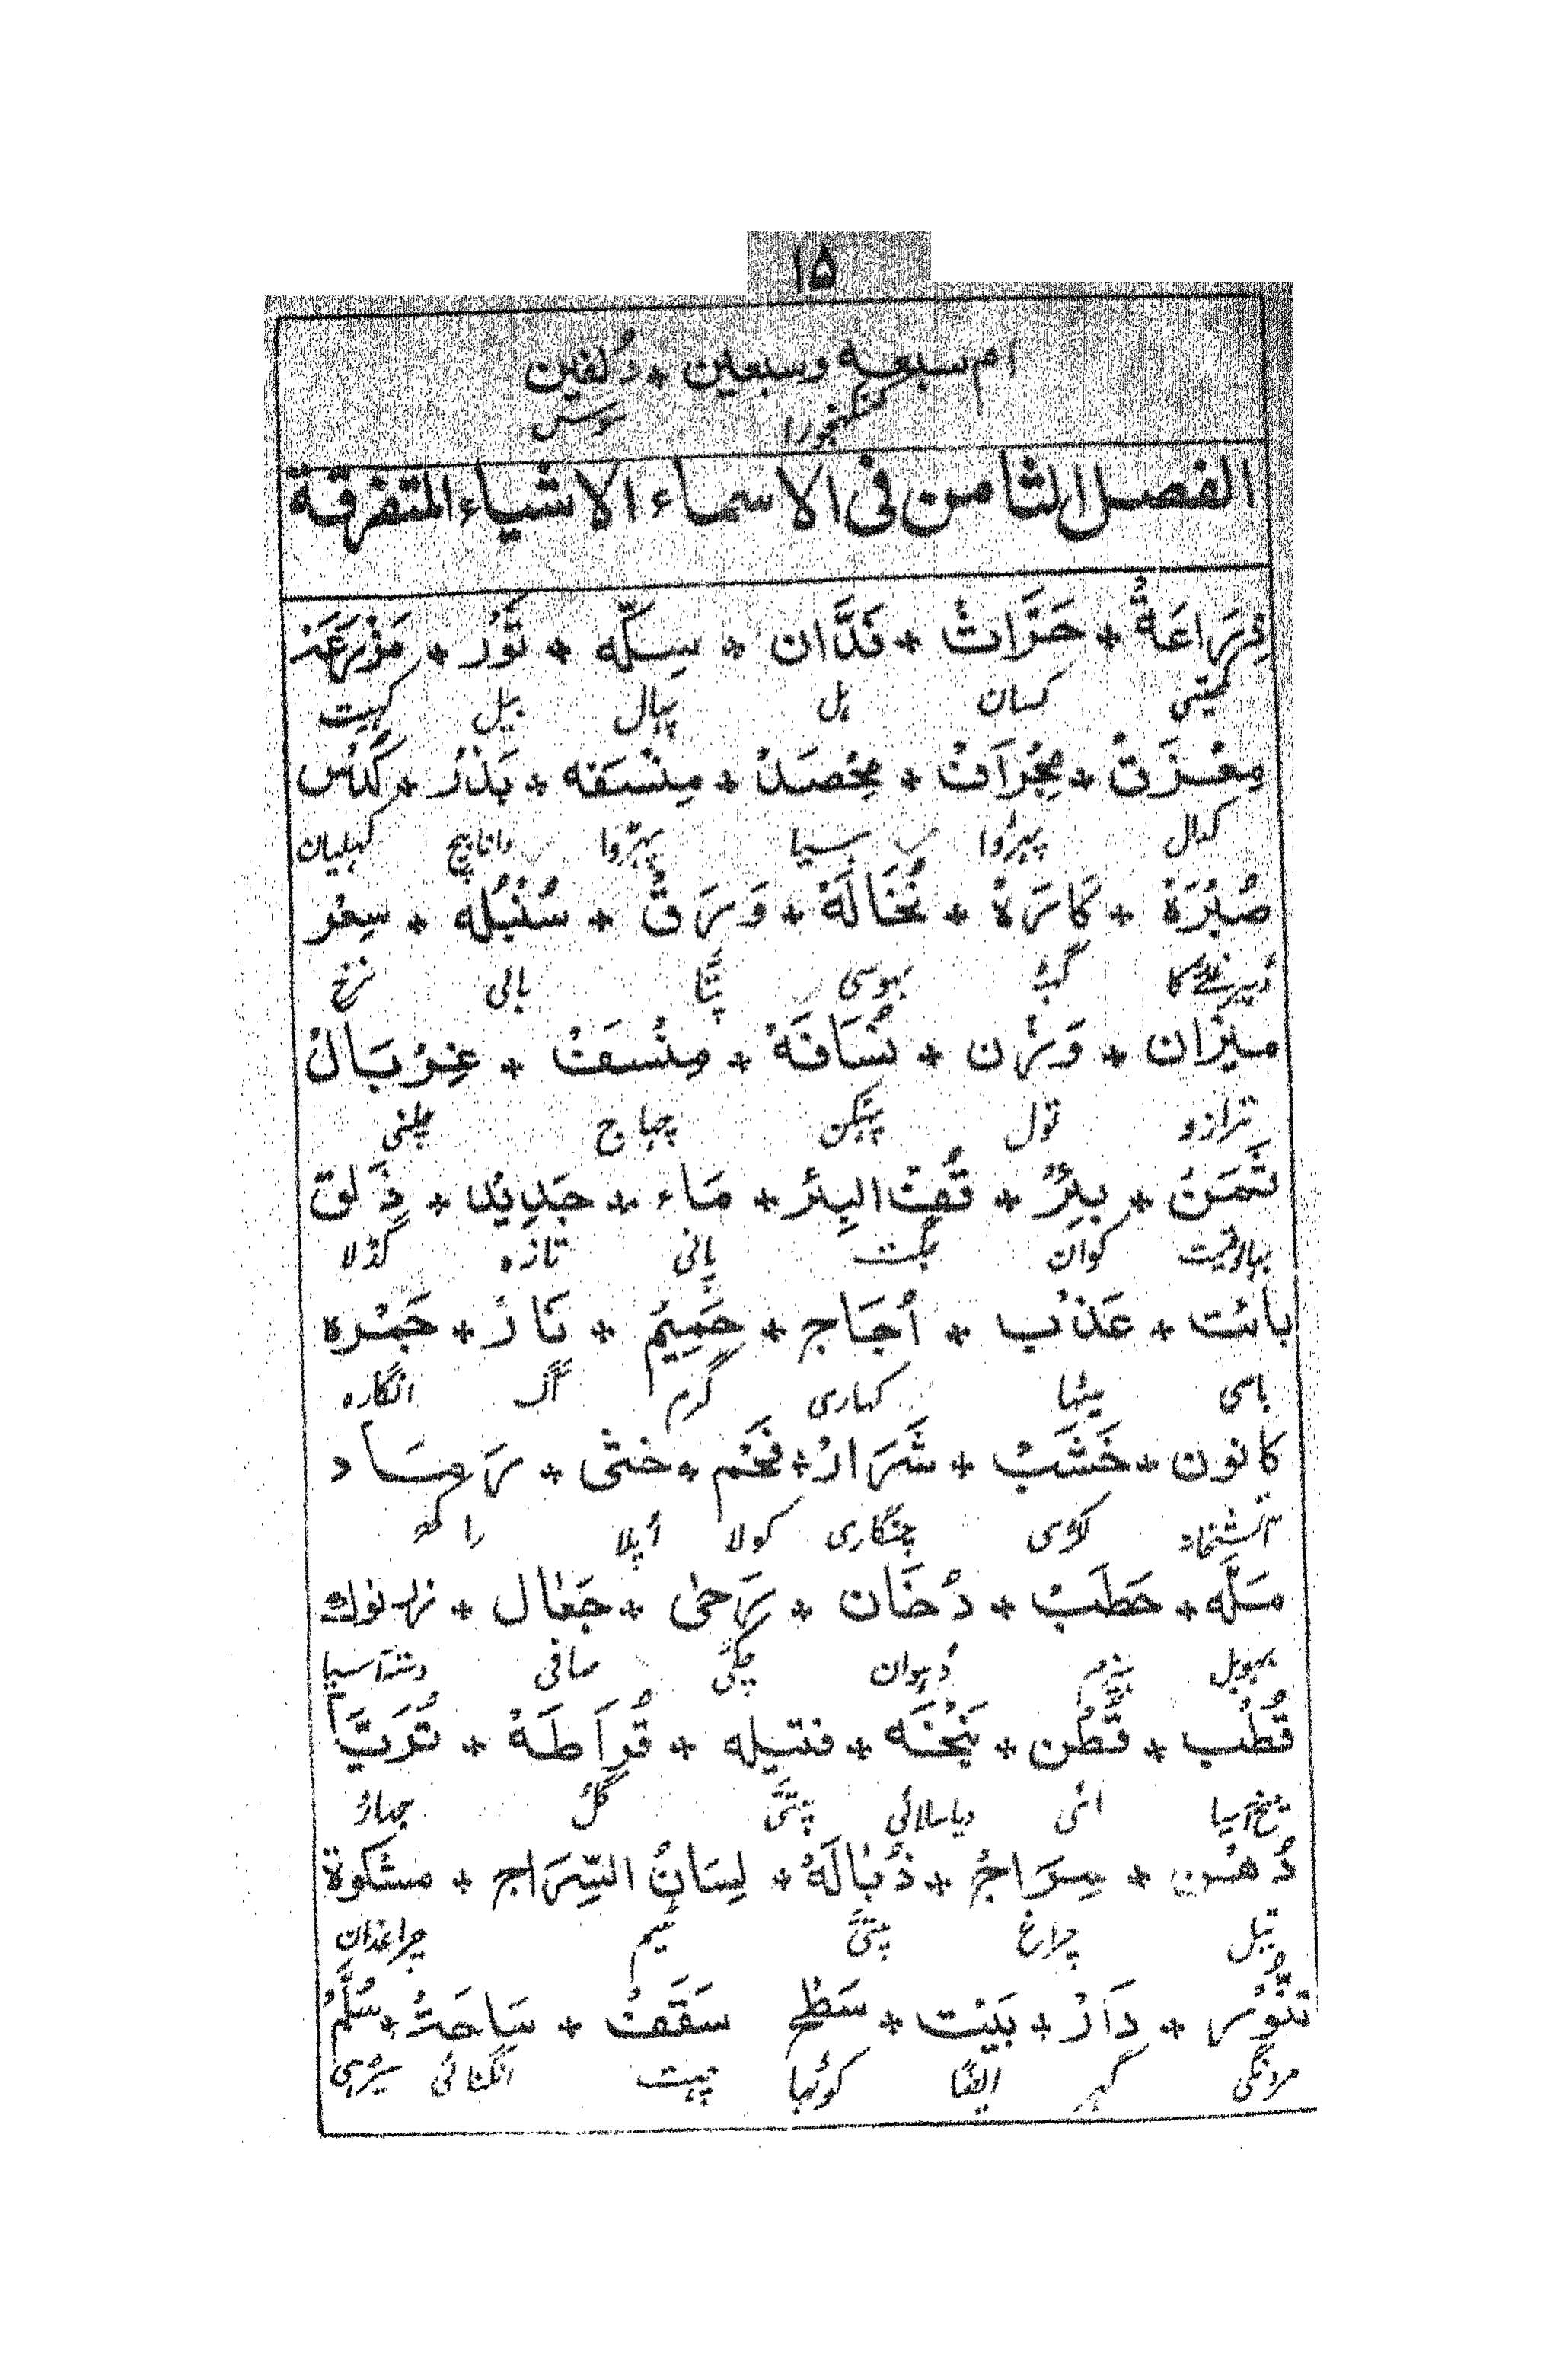 ۱۵
ام سبعه وسبعین + دُلفین
کنکھجورا سوس
الفصل الثامن فی الاسماء الاشیاء المتفرقة
زِرَاعَةُ + حَرَّاثْ + فَدَّان + سِلّه + ثَوْر + مَزْرَعَهْ
کھیتی کسان ہل پہال بیل کہیت
مِعْزَقْ + مِجْرَافْ + مِحْصَدْ + مِنْسَفه + بَذْرْ + کُدُسْ
کدال پہڑوا ہسیا پہڑوا دانا بیج کہلیان
صُبْرَهْ + نُخَالَهْ + وَرَقْ + سُنْبُلَه + سِعْر
ڈہیر غلے کا بہوسی پتّا بالی نرخ
مِیْزَان + وَزْن + نُسَافَهْ + مِنْسَفْ + غِرْبَالْ
ترازو تول پہٹکن چہاج چہلنی
ثَمَنْ + بِئرٌ + قُفّ البِئر + مَاء + جَدِیْد + ذَلق
بہاو قیمت کوان جگت پانی تازه گڈلا
بائت + عَذْب + أُجَاج + حَمِیْمُ + نَارْ + جَمْره
باسی میٹہا کہاری گرم آگ انگاره
کانون + خَشَبْ + شَرَارْ + فَحْم + خثی + رَمَاد
آتشدان لکڑی چنگاری کولا اُپلا راکھ
مَلَّه + حَطَبْ + دُخَان + رَحٰی + جَعَال +
بہوبل دُہوان چکّی صافی دستۂ آسیا
قُطْب + قُطْن + فتیله + قُرَاطَهْ + ثُرَیَّا
میخ آسیا دیاسلائی بتّی گل جہاڑ
دُهْن + سِرَاجْ + ذُبَالَهْ + لِسَانُ السِّرَاج + مشکوة
تیل چراغ بتّی ٹیم چراغدان
تنُّوْر + دَارْ + بَیْت + سَطْح سَقَفْ + سَاحَةْ + سُلَّمْ
گہر کوٹہا چہت انگنائی سیڑہی